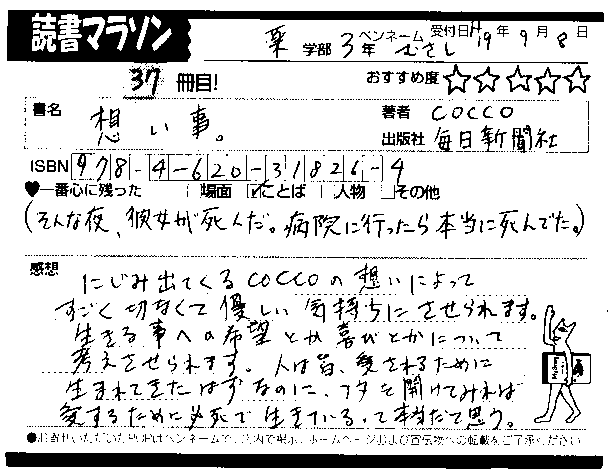 読書マラソン
薬 学部 3年 ペンネーム むさし 受付日H19年9月8日
37 冊目! おすすめ度☆☆☆☆☆
書名 想い事。 著者 COCCO
出版社 毎日新聞社
ISBN 978-4-620-31826-4
♥一番心に残った □場面 ☑ことば □人物 □その他
(そんな夜、彼女が死んだ。病院に行ったら本当に死んでた。)
感想 にじみ出てくるCOCCOの想いによって
すごく切なくて優しい気持ちにさせられます。
生きる事への希望とか喜びとかについて
考えさせられます。人は皆、愛されるために
生まれてきたはずなのに、フタを開けてみれば
愛するために必死で生きているって本当だて思う。
●お寄せいただいたPOPはペンネームで、店内で掲示、ホームページおよび宣伝物への転載をご了承ください